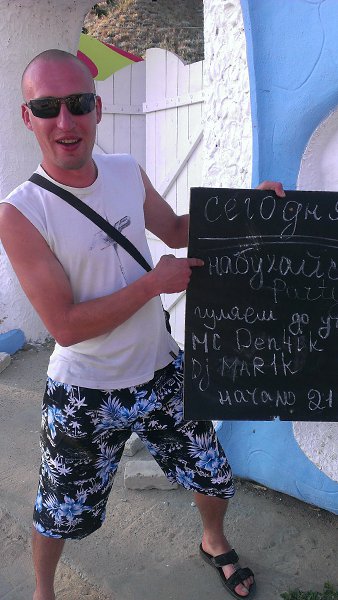 сегодня
набухайс
Parti
гуляем до ут
MC Den4ik
Dj MAR1K
начало 21